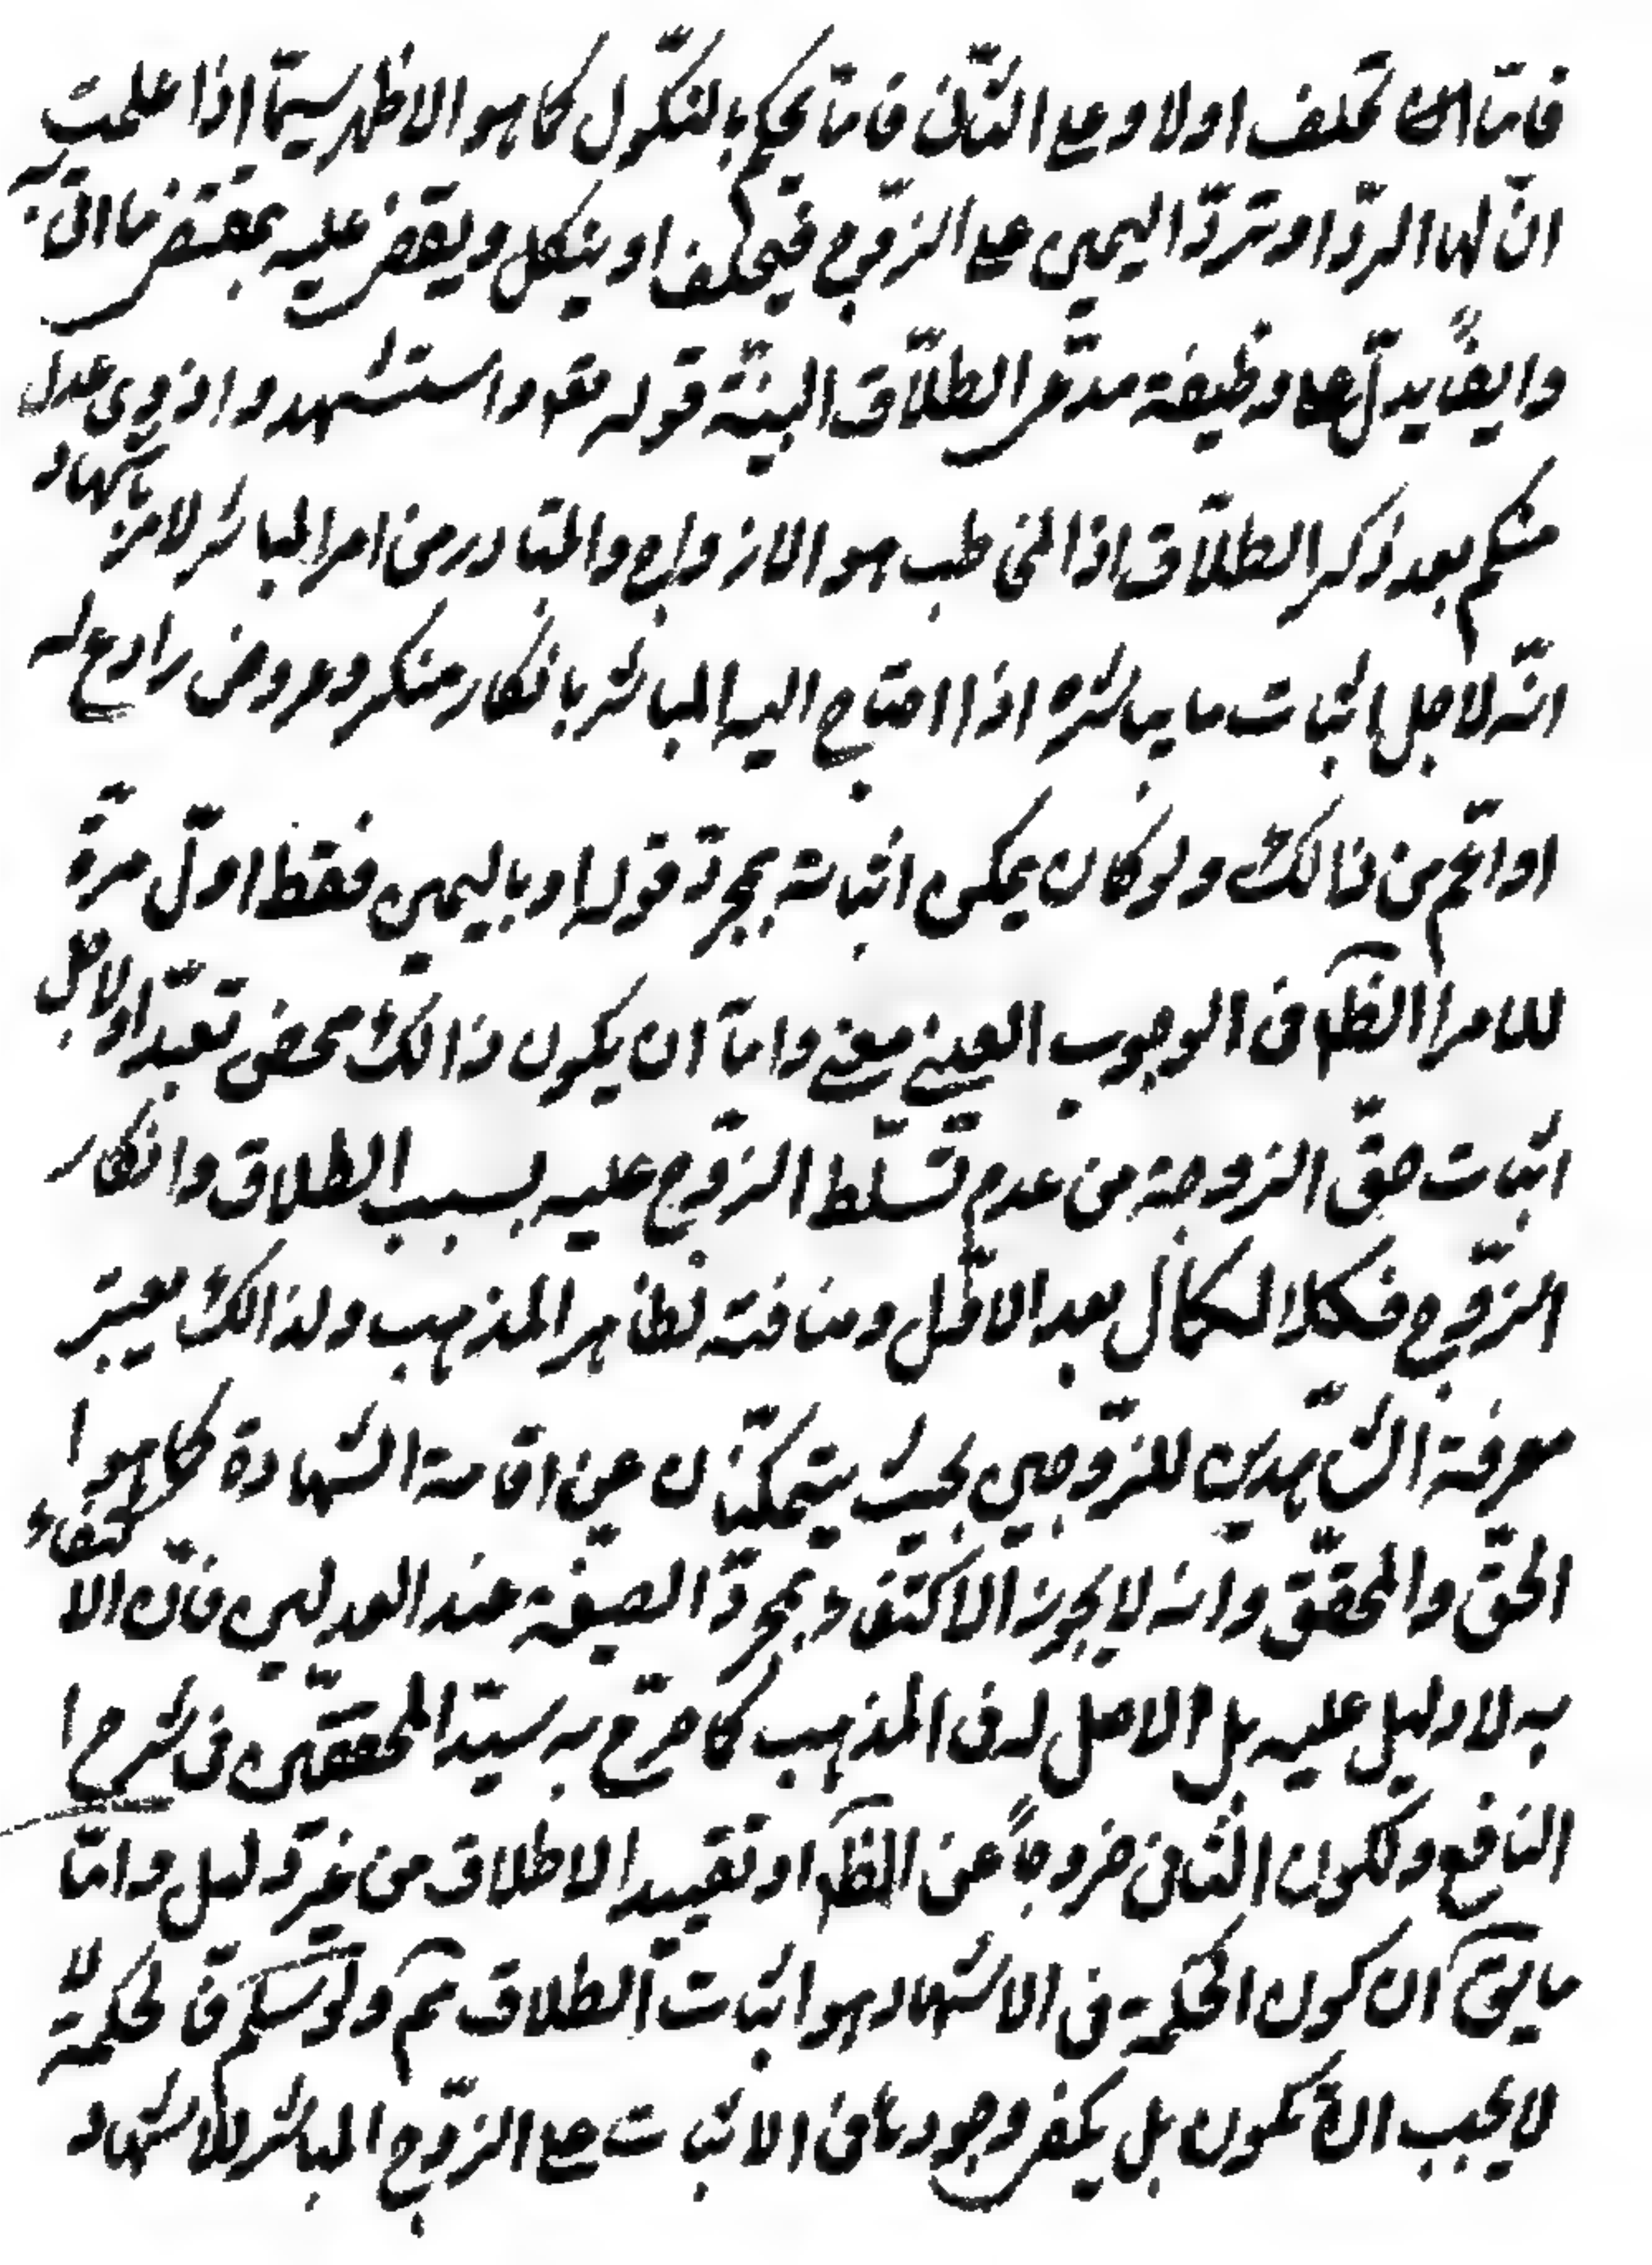 فامّا ان تحلف اولا وعلى الثانى فامّا يحكم بالنكّول كما هو الاظهر سيمّا اذا علمت
انّ لها الردّ او تردّ اليمين على الزّوج فيحلف او ينكل ويقضى عليه بمقتضاها
وايضًا يدلّ على وظيفة مدّعى الطلّاق البيّنة قوله تعه واستشهدوا ذوى عدل
منكم بعد ذكر الطلّاق اذ المخاطب هو الازواج والمتبادر من امر المباشر لامر باشهاد
انّه لاجل اثبات ما يباشره اذا احتاج اليه المباشر بانكار منكر وعروض رادع له
او اعّم من ذالك ولو كان يمكن اثباته بمجردّ قوله او باليمين فقط اوّل مرةّ
للامر الظّ فى الوجوب العينى معنى وامّا ان يكون ذالك محض تعبّد او لاجل
اثبات حقّ الزوجة من عدم تسّلط الزّوج عليه بسبب الطلاق وانكار
الزّوج فكلا الكمال بعد الاوّل ومنافته لظاهر المذهب ولذالك يعتبر
معرفة الشّاهدين للزّوجين بحيث يتمكنّان عن اقامة الشهادة كما هو ا
الحقّ والمحقّق وانه لا يجوز الاكتفاء بمجردّ الصيغة عند العدلين فانّ الاكتفاء
به لا دليل عليه بل الاصل له فى المذهب كما صرّح به سيّد المحققّين فى شرح ا
النافع ولكون الثانى خروجًا عن الظّ او تقييد الاطلاق من غير دليل وامّا
ما يقّ ان كون الحكمة فى الاشهاد هو اثبات الطلاق مّم ولو سلّم فالحكمة لّا
لا يجب ان تكون بل يكفى وجودها فى الاثبات على الزّوج المباشر للاشهاد